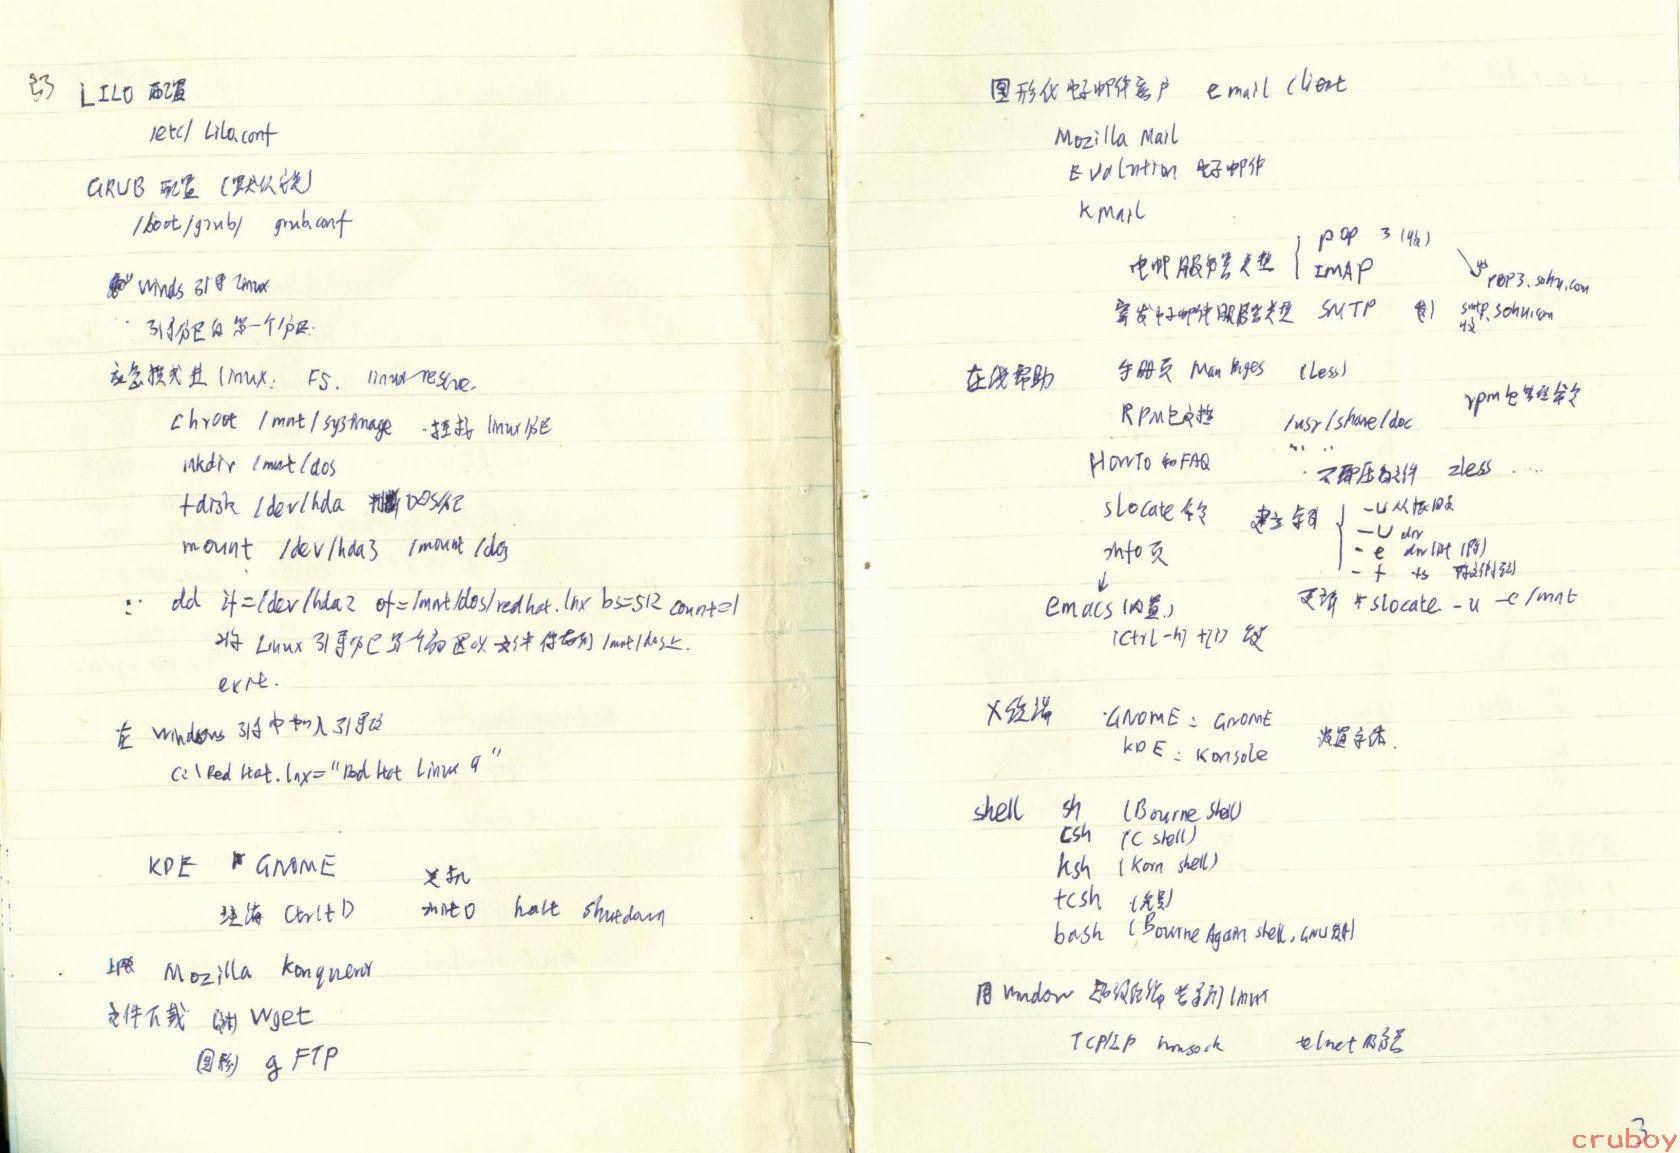 LILO 配置
/etc/ Lilo.conf
GRUB 配置 (默认方式)
/boot/grub/ grub.conf
winds 引导 linux
引导分区的第一个分区.
应急模式进 linux: F5. linux rescue.
chroot /mnt/sysimage 挂接 linux 分区
mkdir /mnt/dos
fdisk /dev/hda 判断 DOS分区
mount /dev/hda3 /mount/dos
dd if=/dev/hda2 of=/mnt/dos/redhat.lnx bs=512 count=1
将 Linux 引导分区第一个扇区以文件保存到 /mnt/dos上.
exit.
在 windows 引导中加入引导
C:\Red Hat.lnx="Red Hat Linux 9"
KDE GNOME
注销 Ctrl+D
关机
init 0 halt shutdown
上网 Mozilla Konqueror
文件下载 Wget
(图形) gFTP
图形化电子邮件客户 email client
Mozilla Mail
Evolution 电子邮件
KMail
电邮服务器类型 POP 3 (收) pop3.sohu.com
IMAP
寄发电子邮件服务器类型 SMTP smtp.sohu.com
在线帮助 手册页 Man Pages (less)
RPM包文档 /usr/share/doc rpm包管理命令
HowTo 和 FAQ 不解压看文件 zless ....
slocate 命令 建立索引 -u 从根开始
-U dir
- e dir list
- f fs
info 页
emacs (内置)
(Ctrl-h)+(i) 键
更新 # slocate -u -e /mnt
X终端 GNOME: GNOME
KDE: Konsole 设置字体.
shell sh (Bourne shell)
csh (C shell)
ksh (Korn shell)
tcsh
bash (Bourne Again shell, GNU
用 window 超级终端 登录到 linux
TCP/IP winsock telnet 服务器
3
cruboy